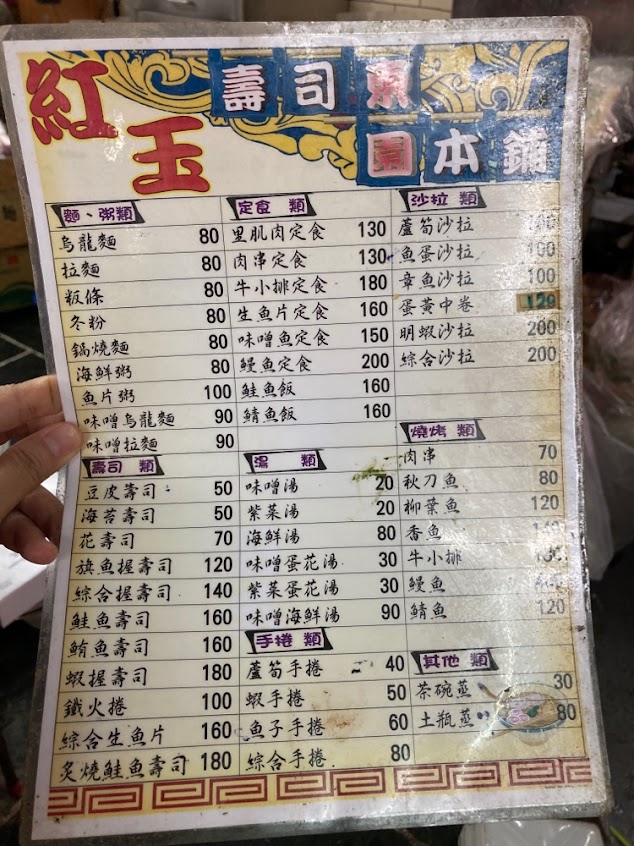 紅玉
壽司東
園本舖
麵、粥類
烏龍麵 80
拉麵 80
粄條 80
冬粉 80
鍋燒麵 80
海鮮粥 80
魚片粥 100
味噌烏龍麵 90
味噌拉麵 90
壽司 類
豆皮壽司 50
海苔壽司 50
花壽司 70
旗魚握壽司 120
綜合握壽司 140
鮭魚壽司 160
鮪魚壽司 160
蝦握壽司 180
鐵火捲 100
綜合生魚片 160
炙燒鮭魚壽司 180
定食 類
里肌肉定食 130
肉串定食 130
牛小排定食 180
生魚片定食 160
味噌魚定食 150
鰻魚定食 200
鮭魚飯 160
鯖魚飯 160
湯 類
味噌湯 20
紫菜湯 20
海鮮湯 80
味噌蛋花湯 30
紫菜蛋花湯 30
味噌海鮮湯 90
手捲 類
蘆筍手捲 40
蝦手捲 50
魚子手捲 60
綜合手捲 80
沙拉 類
蘆筍沙拉 100
魚蛋沙拉 100
章魚沙拉 100
蛋黃中卷 120
明蝦沙拉 200
綜合沙拉 200
燒烤 類
肉串 70
秋刀魚 80
柳葉魚 120
香魚
牛小排
鰻魚
鯖魚 120
其他 類
茶碗蒸 30
土瓶蒸 80